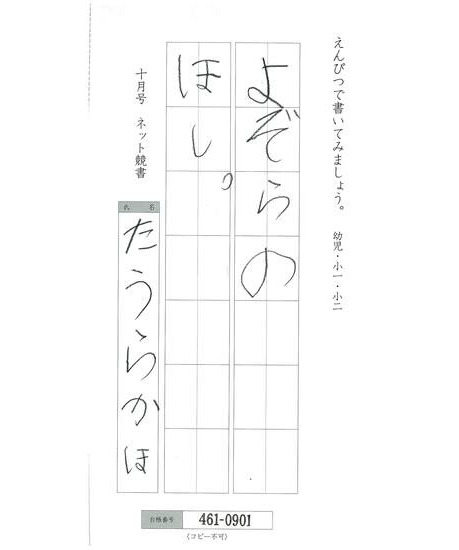 えんぴつで書いてみましょう。 幼児・小一・小二
よぞらの
ほし。
十月号 ネット競書
氏名
たうらかほ
台帳番号 461-0901
(コピー不可)